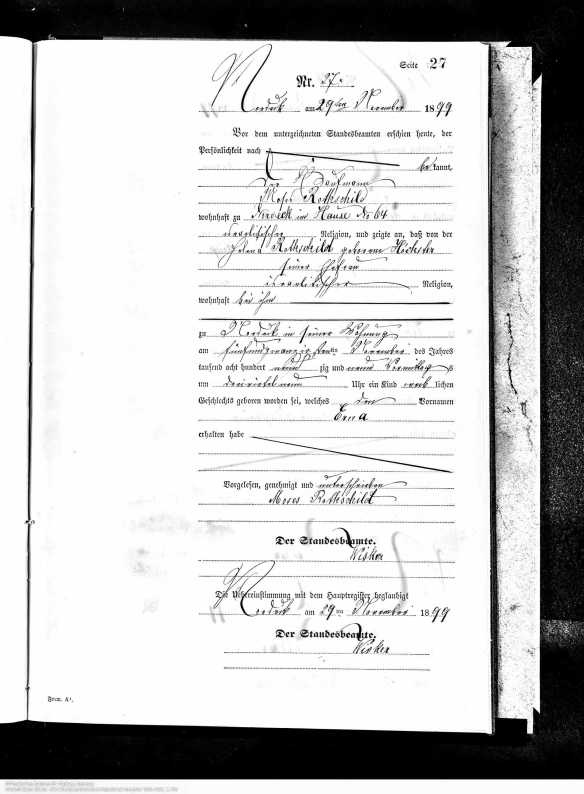 Seite 27
Nr. 27.
Nordeck am 29ten November 1899
Vor dem unterzeichneten Standesbeamten erschien heute, der
Persönlichkeit nach
be kannt,
Kaufmann
Moses Rothschild
wohnhaft zu Nordeck im Hause No 64
israelitischer Religion, und zeigte an, daß von der
Rothschild geborene Höchster
seiner Ehefrau
israelitischer Religion,
wohnhaft bei ihm
zu Nordeck in seiner Wohnung
am fünfundzwanzigsten November des Jahres
tausend acht hundert neunzig und neun Vormittags
um dreiviertel neun Uhr ein Kind weiblichen
Geschlechts geboren worden sei, welches den Vornamen
Erna
erhalten habe
Vorgelesen, genehmigt und unterschrieben
Moses Rothschild
Der Standesbeamte.
Die Uebereinstimmung mit dem Hauptregister beglaubigt
Nordeck am 29ten November 1899
Der Standesbeamte.
Form. A¹.